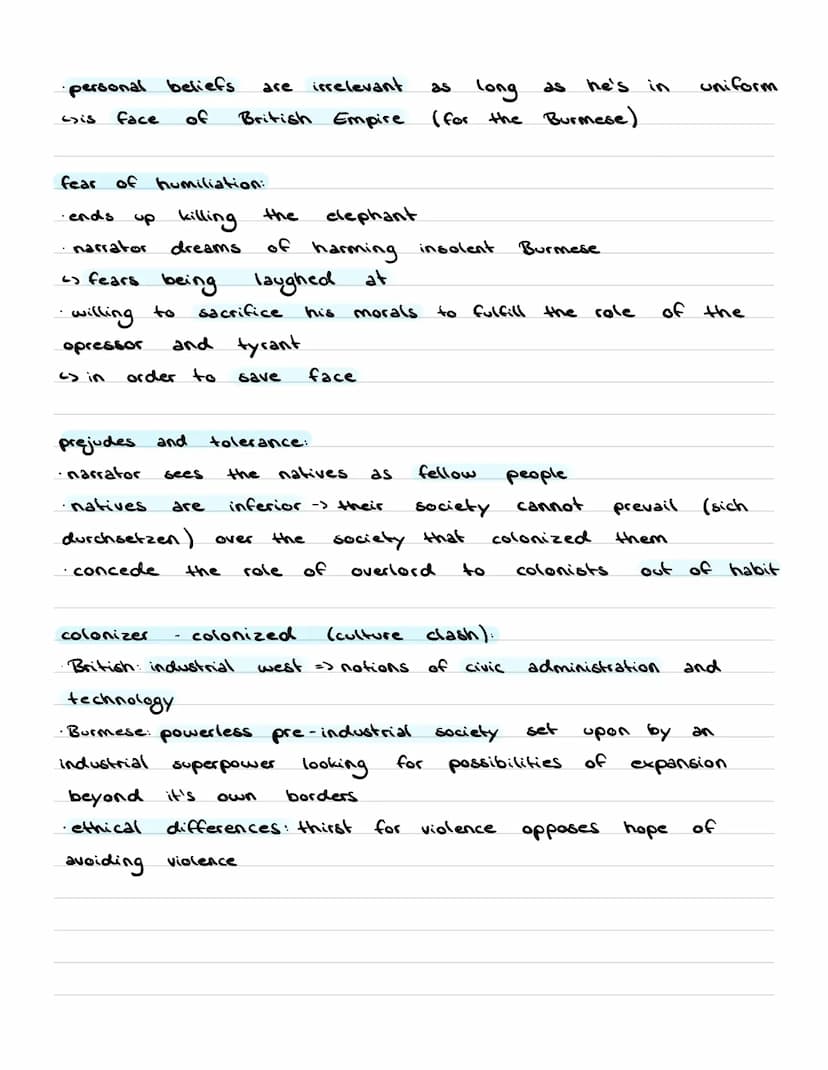 · personal beliefs are irrelevant as long as he's in uniform
↳ is face of British Empire (for the Burmese)
fear of humiliation:
· ends up killing the elephant
· narrator dreams of harming insolent Burmese
↳ fears being laughed at
· willing to sacrifice his morals to fulfill the role of the
opressor and tyrant
↳ in order to save face
prejudes and tolerance:
· narrator sees the natives as fellow people
· natives are inferior -> their society cannot prevail (sich
durchsetzen) over the society that colonized them
· concede the role of overlord to colonists out of habit
colonizer - colonized (culture clash):
· British: industrial west => notions of civic administration and
technology
· Burmese: powerless pre-industrial society set upon by an
industrial superpower looking for possibilities of expansion
beyond it's own borders
· ethical differences: thirst for violence opposes hope of
avoiding violence